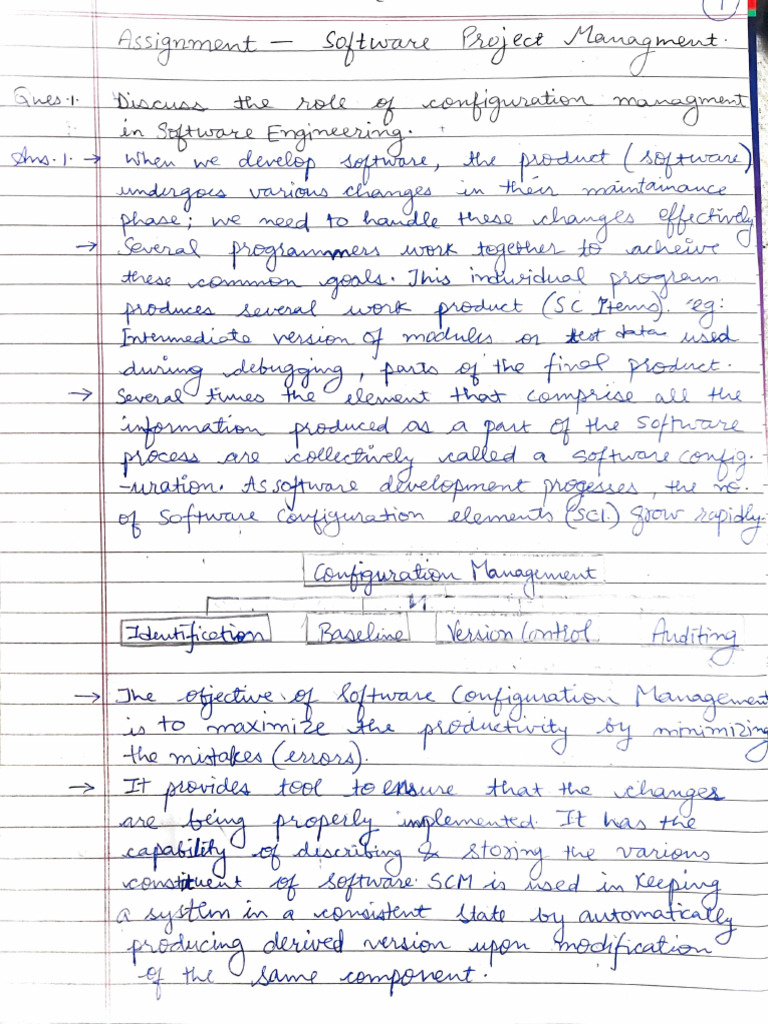 1
Assignment — Software Project Managment.
Ques.1. Discuss the role of configuration managment
in Software Engineering.
Ans.1. → When we develop software, the product (software)
undergoes various changes in their maintainance
phase; we need to handle these changes effectively
→ Several programmers work together to acheive
these common goals. This individual program
produces several work product (SC Items). eg:
Intermediate version of modules or test data used
during debugging, parts of the final product.
→ Several times the element that comprise all the
information produced as a part of the software
process are collectively called a software config.
-uration. As software development progesses, the no.
of Software Configuration elements (SCI.) grow rapidly.
Configuration Management
Identification Baseline Version Control Auditing
→ The objective of Software Configuration Management
is to maximize the productivity by minimizing
the mistakes (errors).
→ It provides tool to ensure that the changes
are being properly implemented. It has the
capability of describing & storing the various
constituent of software. SCM is used in keeping
a system in a consistent state by automatically
producing derived version upon modification
of the same component.